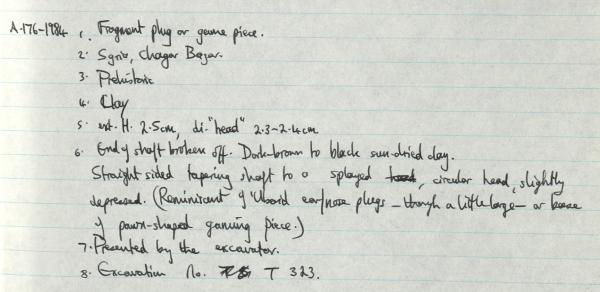 A.176-1984 1. Fragment plug or game piece.
2. Syria, Chagar Bazar.
3. Prehistoric
4. Clay
5. ext. H. 2.5cm, di. "head" 2.3-2.4cm
6. End of shaft broken off. Dark-brown to black sun-dried clay.
Straight sided tapering shaft to a splayed head, circular head, slightly
depressed. (Reminiscent of Ubaid ear/nose plugs - though a little large - or base
of pawn-shaped gaming piece.)
7. Presented by the excavator.
8. Excavation No. T 323.